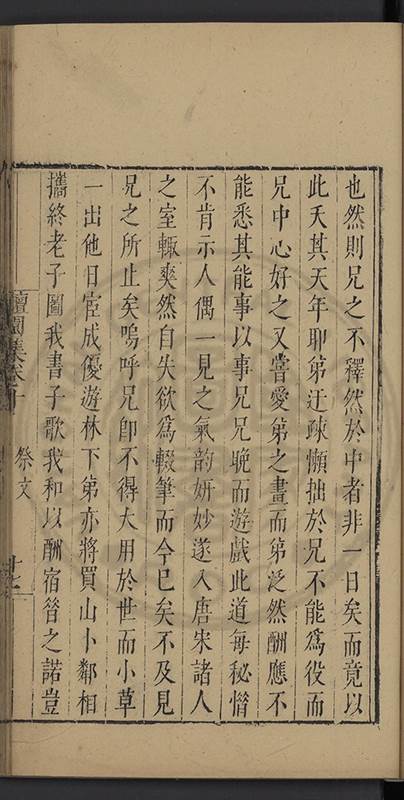 也然則兄之不釋然於中者非一日矣而竟以
此夭其天年耶第迂疎懶拙於兄不能為役而
兄中心好之又嘗愛第之畫而第泛然酬應不
能悉其能事以事兄兄晚而遊戲此道每秘惜
不肯示人偶一見之氣韵妍妙遂入唐宋諸人
之室輙爽然自失欲為輟筆而今已矣不及見
兄之所止矣嗚呼兄即不得大用於世而小草
一出他日宦成優遊林下第亦將買山卜鄰相
攜終老子圖我書子歌我和以酬宿昔之諾豈
集卷十
祭文